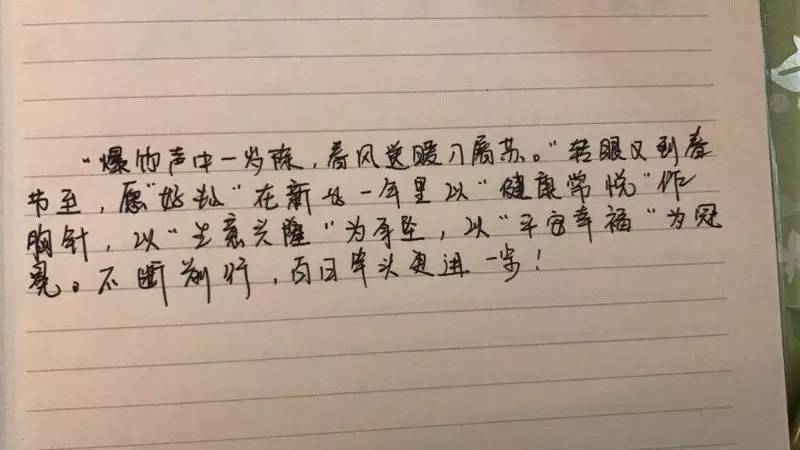 “爆竹声中一岁除，春风送暖入屠苏。”转眼又到春
节至，愿“好”在新的一年里以“健康常悦”作
胸针，以“生意兴隆”为耳坠，以“平安幸福”为冠
冕。不断前行，百日竿头更进一步！